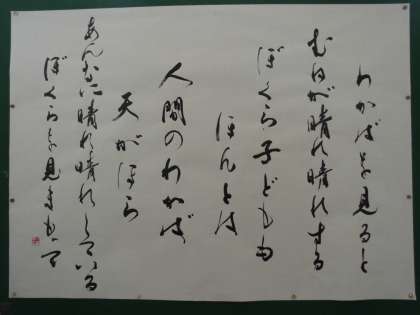 わかばを見ると
むねが晴れ晴れする
ぼくら子どもも
ほんとは
人間のわかば
天がほら
あんなに晴れ晴れしている
ぼくらを見まもって